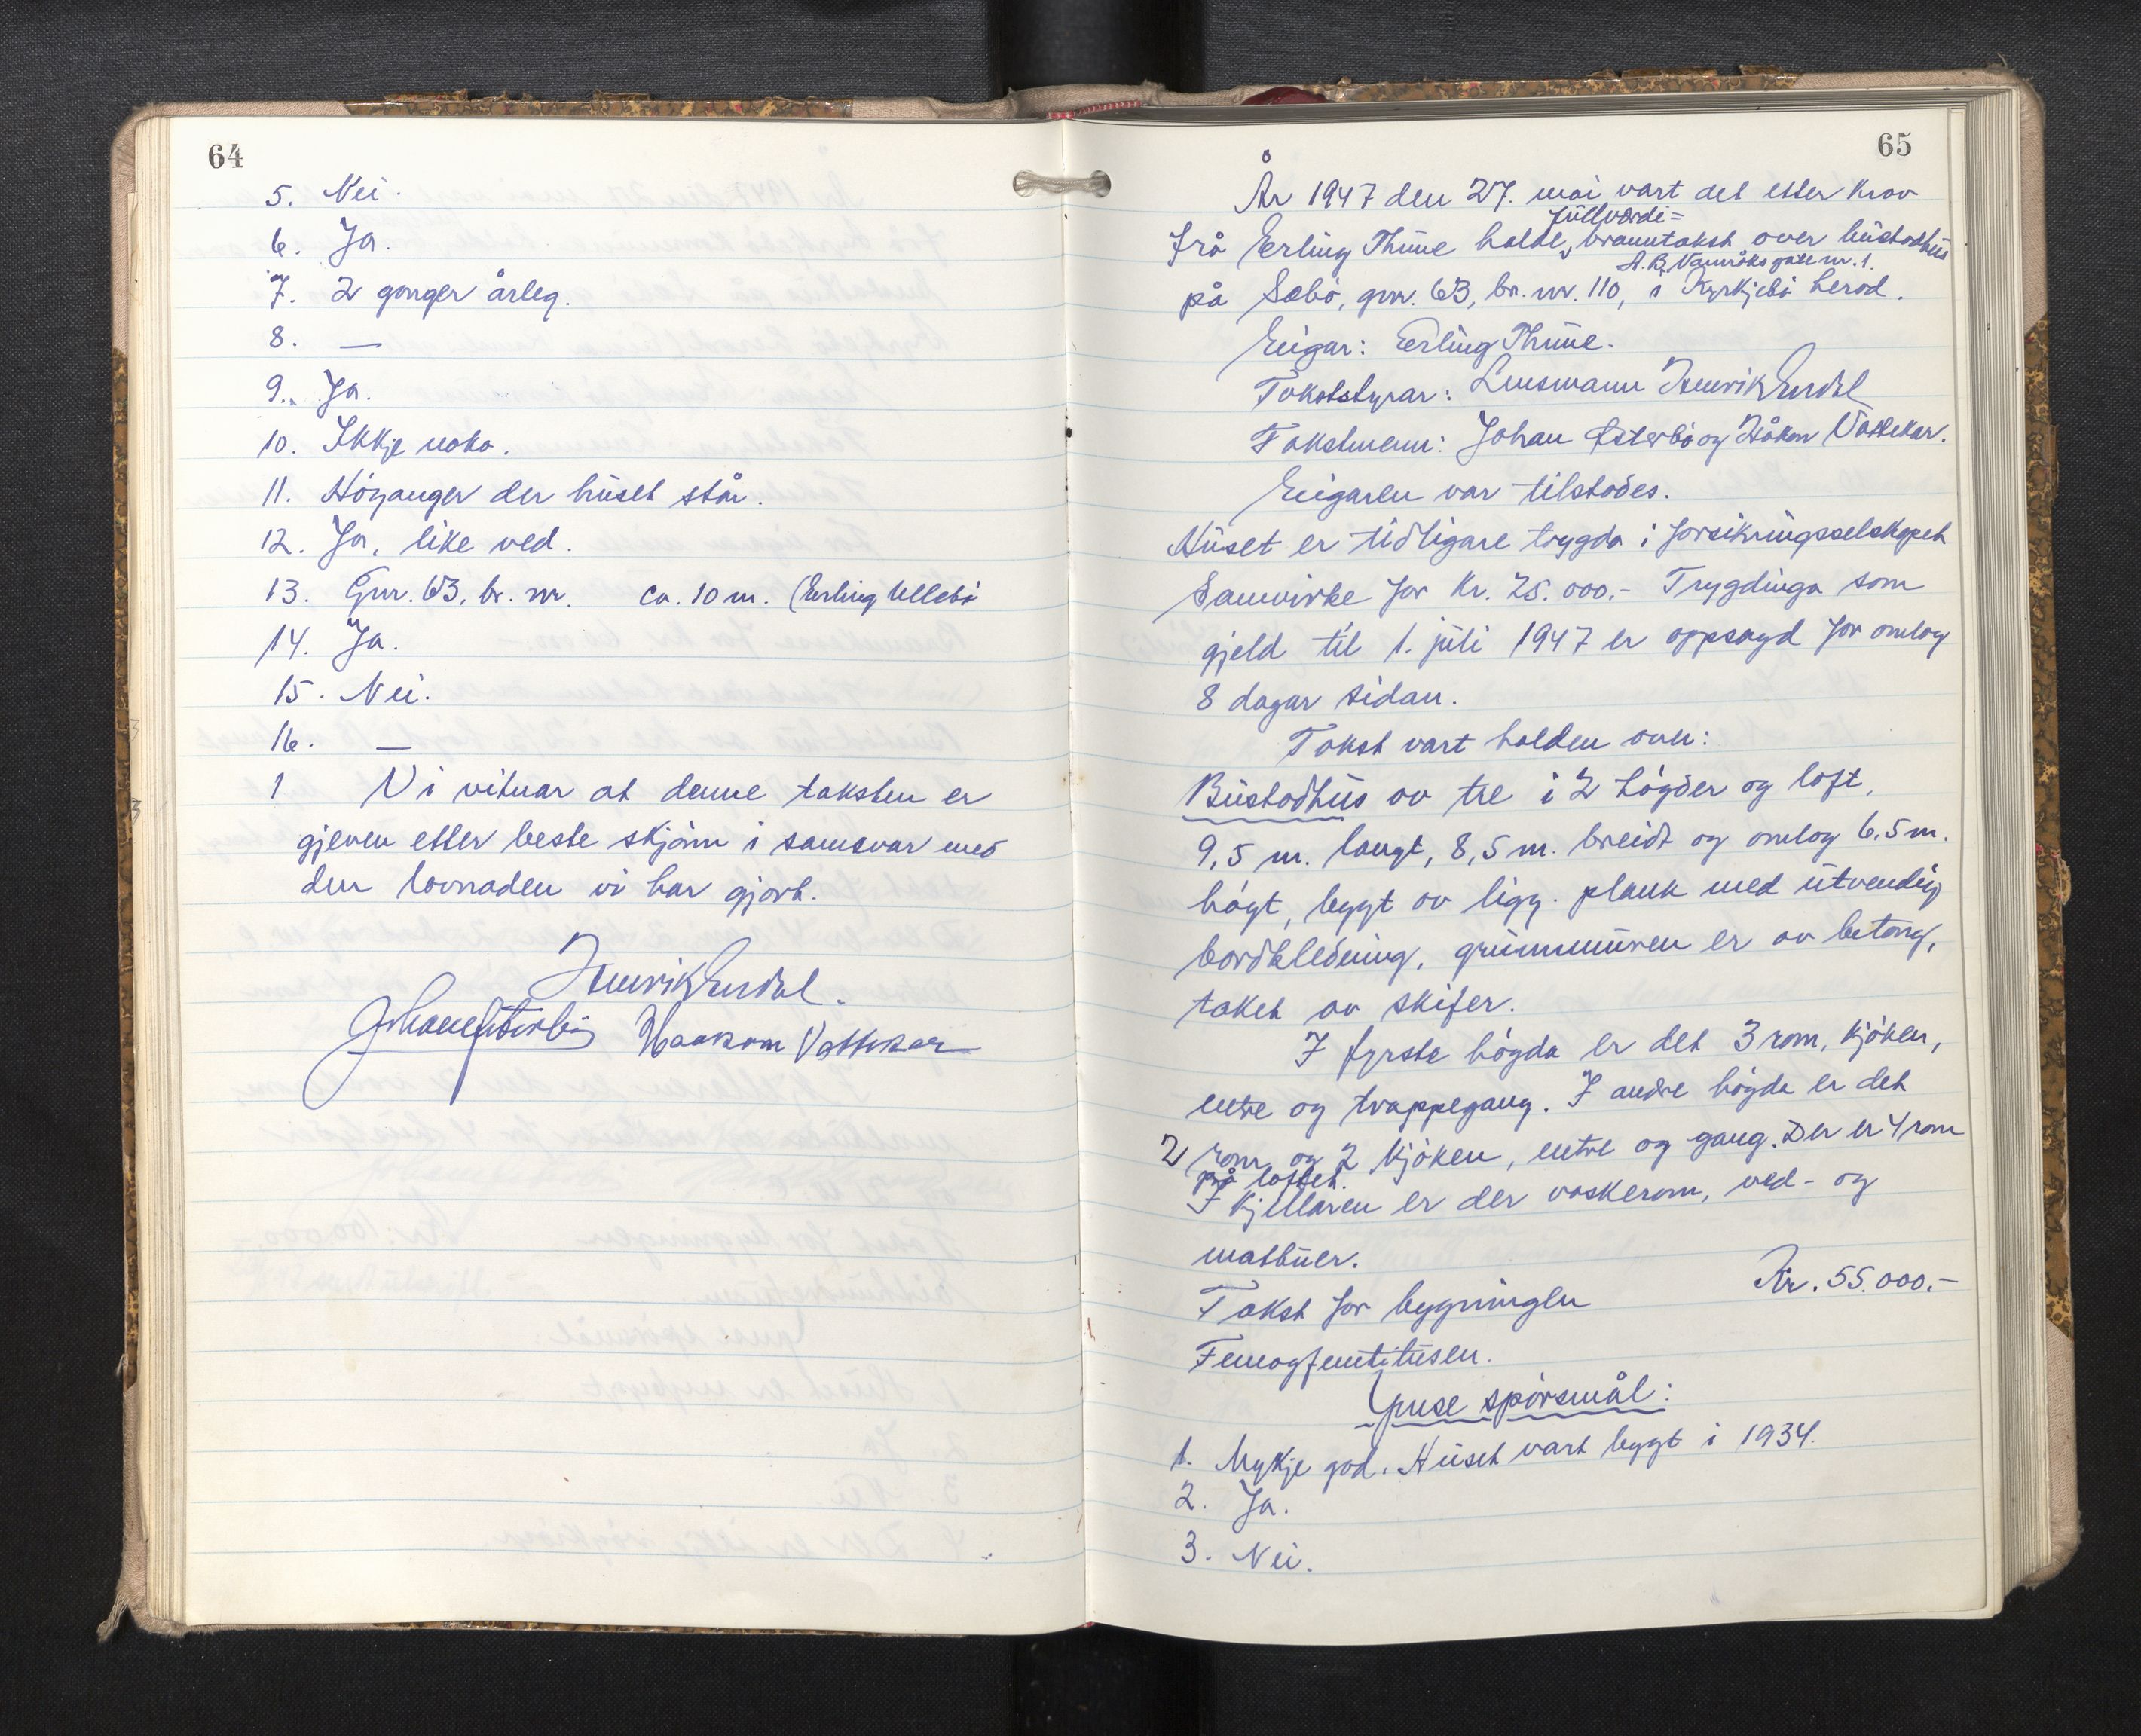 64
5. Nei.
6. Ja.
7. 2 gonger årleg.
8. —
9. Ja.
10. Ikkje noko.
11. Höyanger der huset står.
12. Ja, like ved.
13. Gnr. 63, br. nr. ca. 10 m. (Erling Ullebö
14. Ja.
15. Nei.
16. —
1 Vi vitnar at denne taksten er
gjeven etter beste skjönn i samsvar med
den lovnaden vi har gjort.
Henrik Erdal.
Johan Østerbö Haakon Vattekar
65
År 1947 den 27. mai vart det etter krav
fullverdi=
frå Erling Thune halde branntakst over bustadhus
gate nr. 1.
på Sæbö, gnr. 63, br. nr. 110, i Kyrkjebö herad.
Eigar: Erling Thune.
Takststyrar: Lensmann Henrik Erdal
Takstmenn: Johan Østerbö og Håkon Vattekar.
Eigaren var tilstades.
Huset er tidligare trygda i forsikringsselskapet
Samvirke for kr. 25.000.- Trygdinga som
gjeld til 1. juli 1947 er oppsagd for omlag
8 dagar sidan.
Takst vart halden over:
Bustadhus av tre i 2 högder og loft,
9,5 m. langt, 8,5 m. breidt og omlag 6,5 m.
högt, bygt av ligg. plank med utvendig
bordkledning, grunnmuren er av betong,
taket av skifer.
I fyrste högda er det 3 rom, kjöken,
entre og trappegang. I andre högda er det
2 rom og 2 kjöken, entre og gang. Der er 4 rom
på loftet.
I kjellaren er der vaskerom, ved- og
matbuer.
Takst for bygningen Kr. 55.000.-
Femogfemtitusen.
Ymse spörsmål:
1. Mykje god. Huset vart bygt i 1934.
2. Ja.
3. Nei.